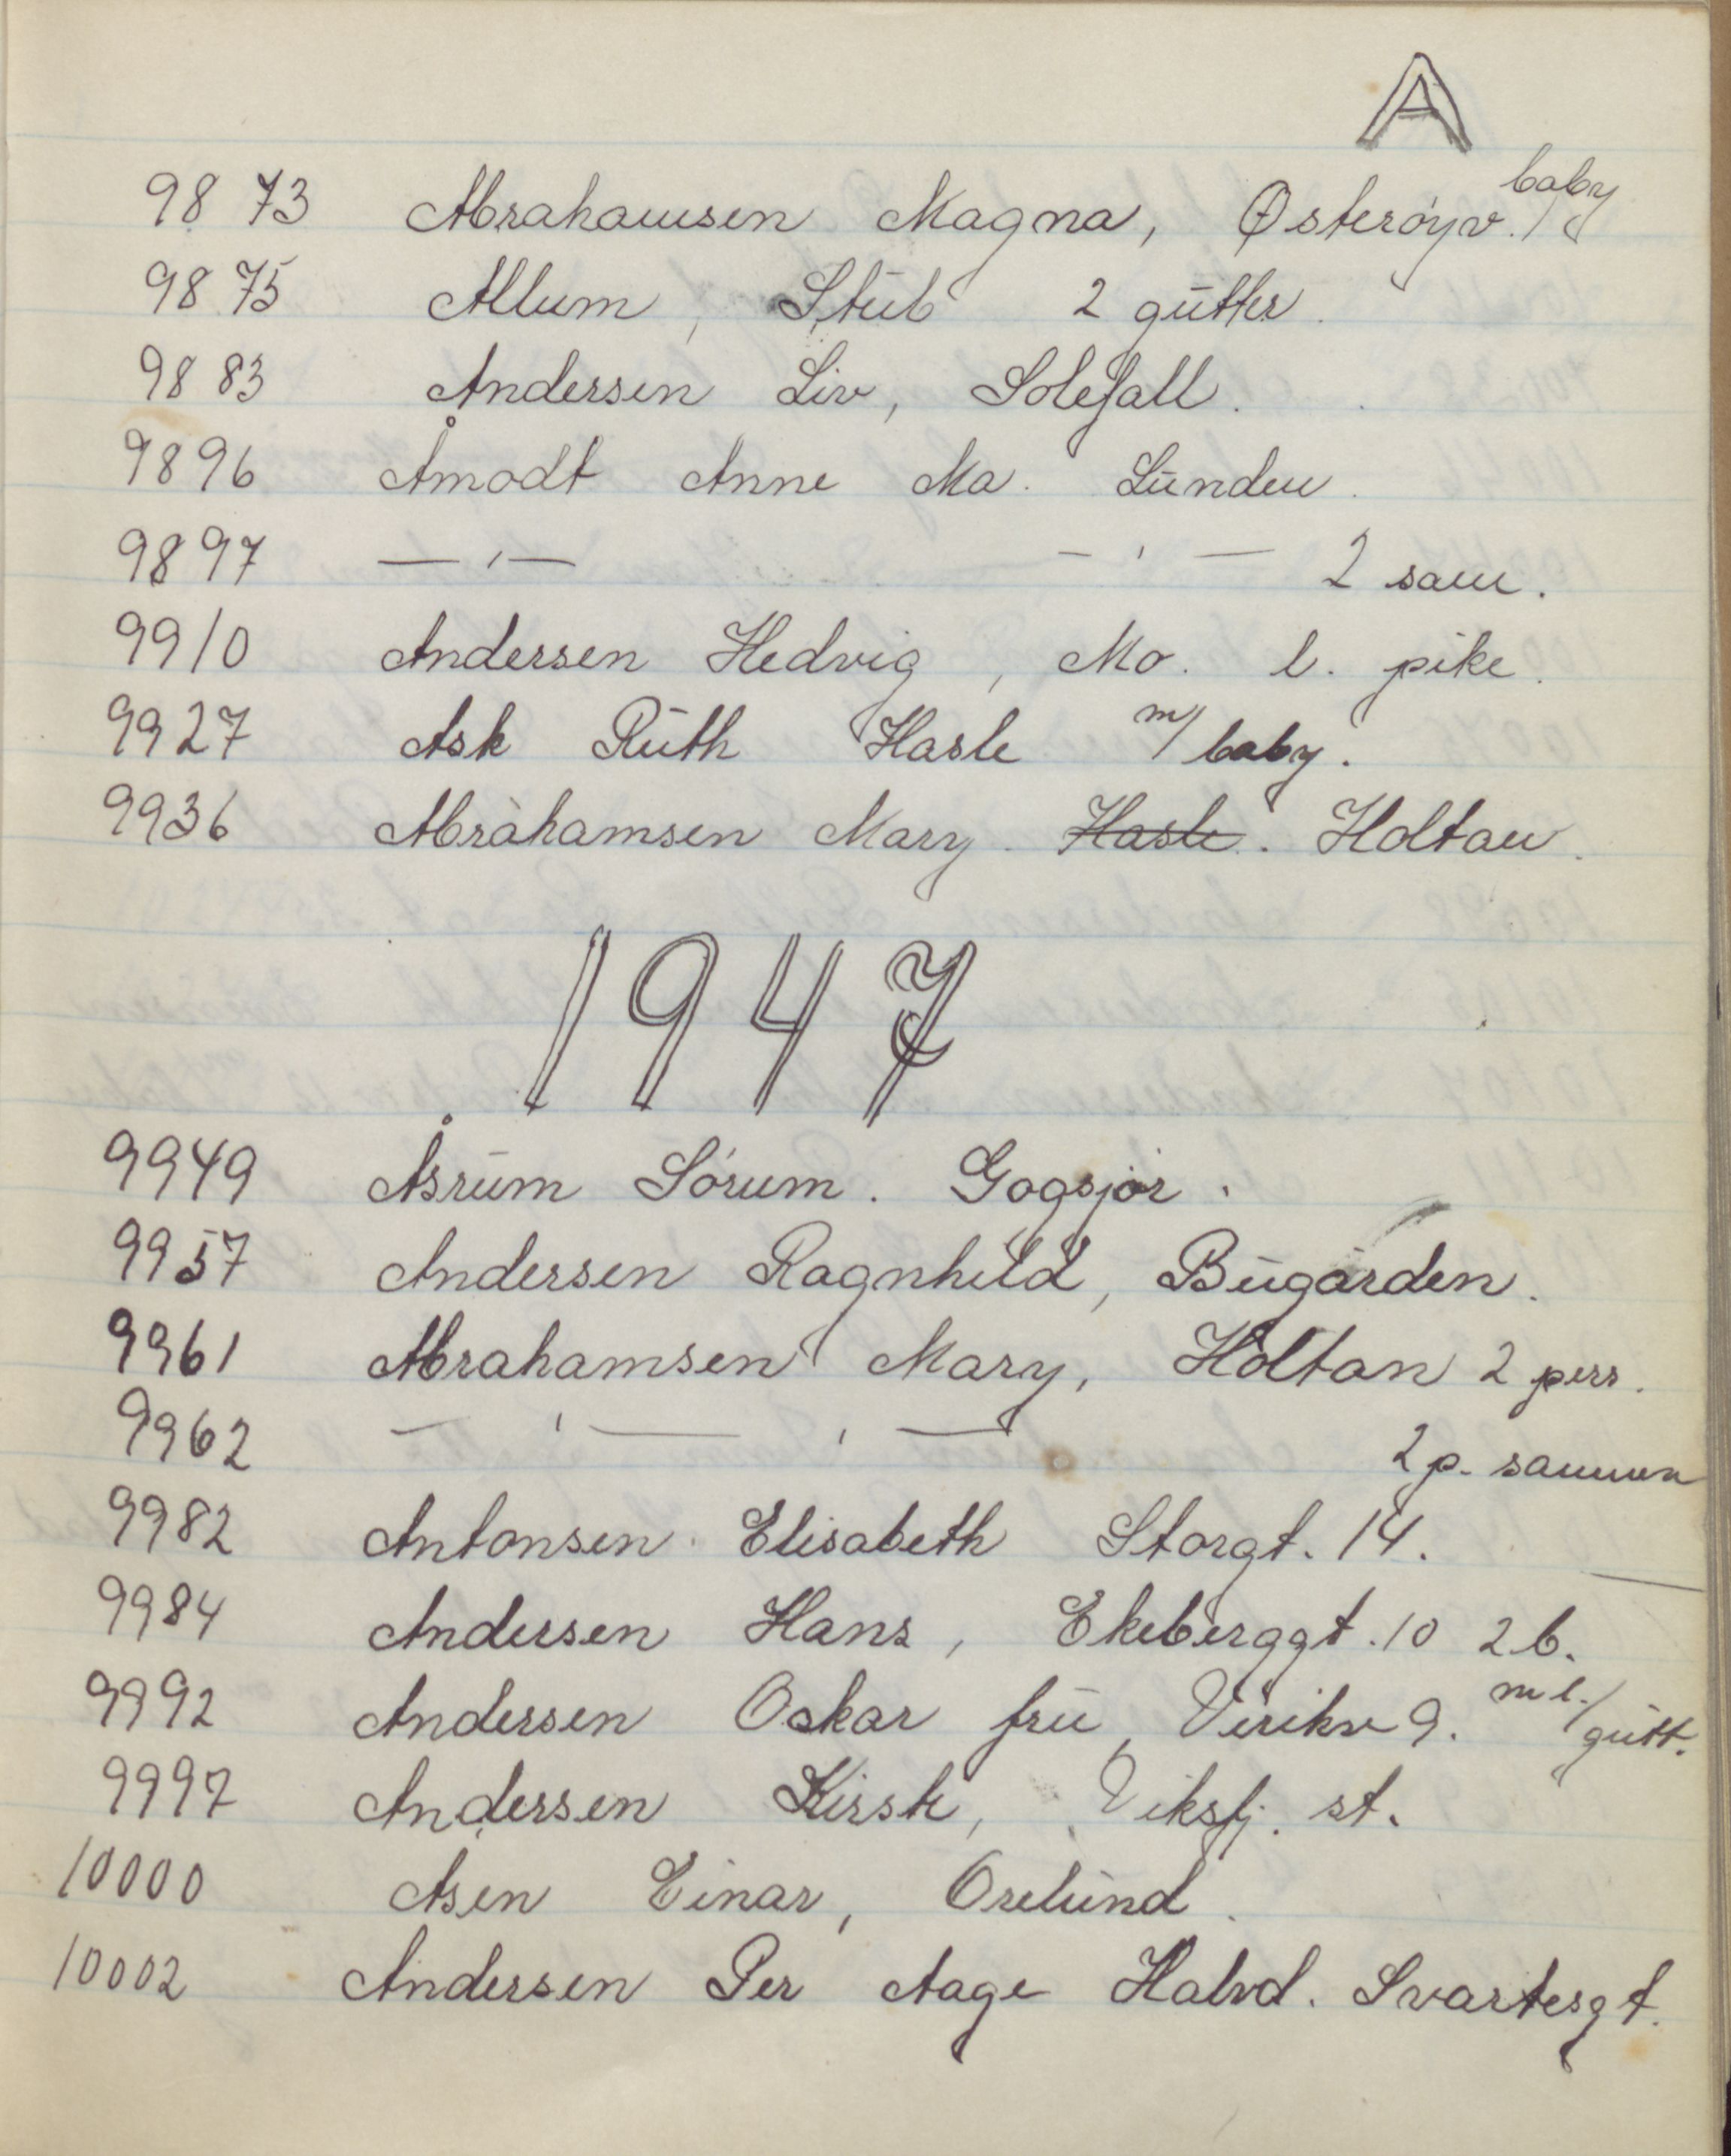 A
9873 Abrahamsen Magna, Østerøyv. / baby
9875 Allum, Stub 2 gutter.
9883 Andersen Liv, Solefall.
9896 Åmodt Anne Ma. Lunden.
9897 — ' — — ' — 2 sam.
9910 Andersen Hedvig, Mo. l. pike.
9927 Ask Ruth Hasle m/ baby.
9936 Abrahamsen Mary. Hasle. Holtan.
1947
9949 Åsrum Sørum. Gogsjør.
9957 Andersen Ragnhild, Bugården.
9961 Abrahamsen Mary, Holtan 2 pers.
9962 — ' — ' — 2 p. sammen
9982 Antonsen Elisabeth Storgt. 14.
9984 Andersen Hans, Ekeberggt. 10 2 b.
9992 Andersen Oskar fru, Virikv 9. m l./ gutt.
9997 Andersen Kirsti, Viksfj. st.
10000 Åsen Einar, Orelund.
10002 Andersen Per Aage Halvd. Svartesgt.